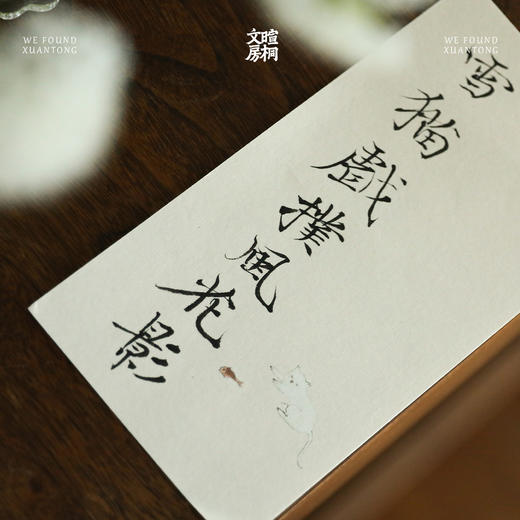 WE FOUND
XUANTONG
暄桐
文房
WE FOUND
XUANTONG
雪猫戲撲風花影